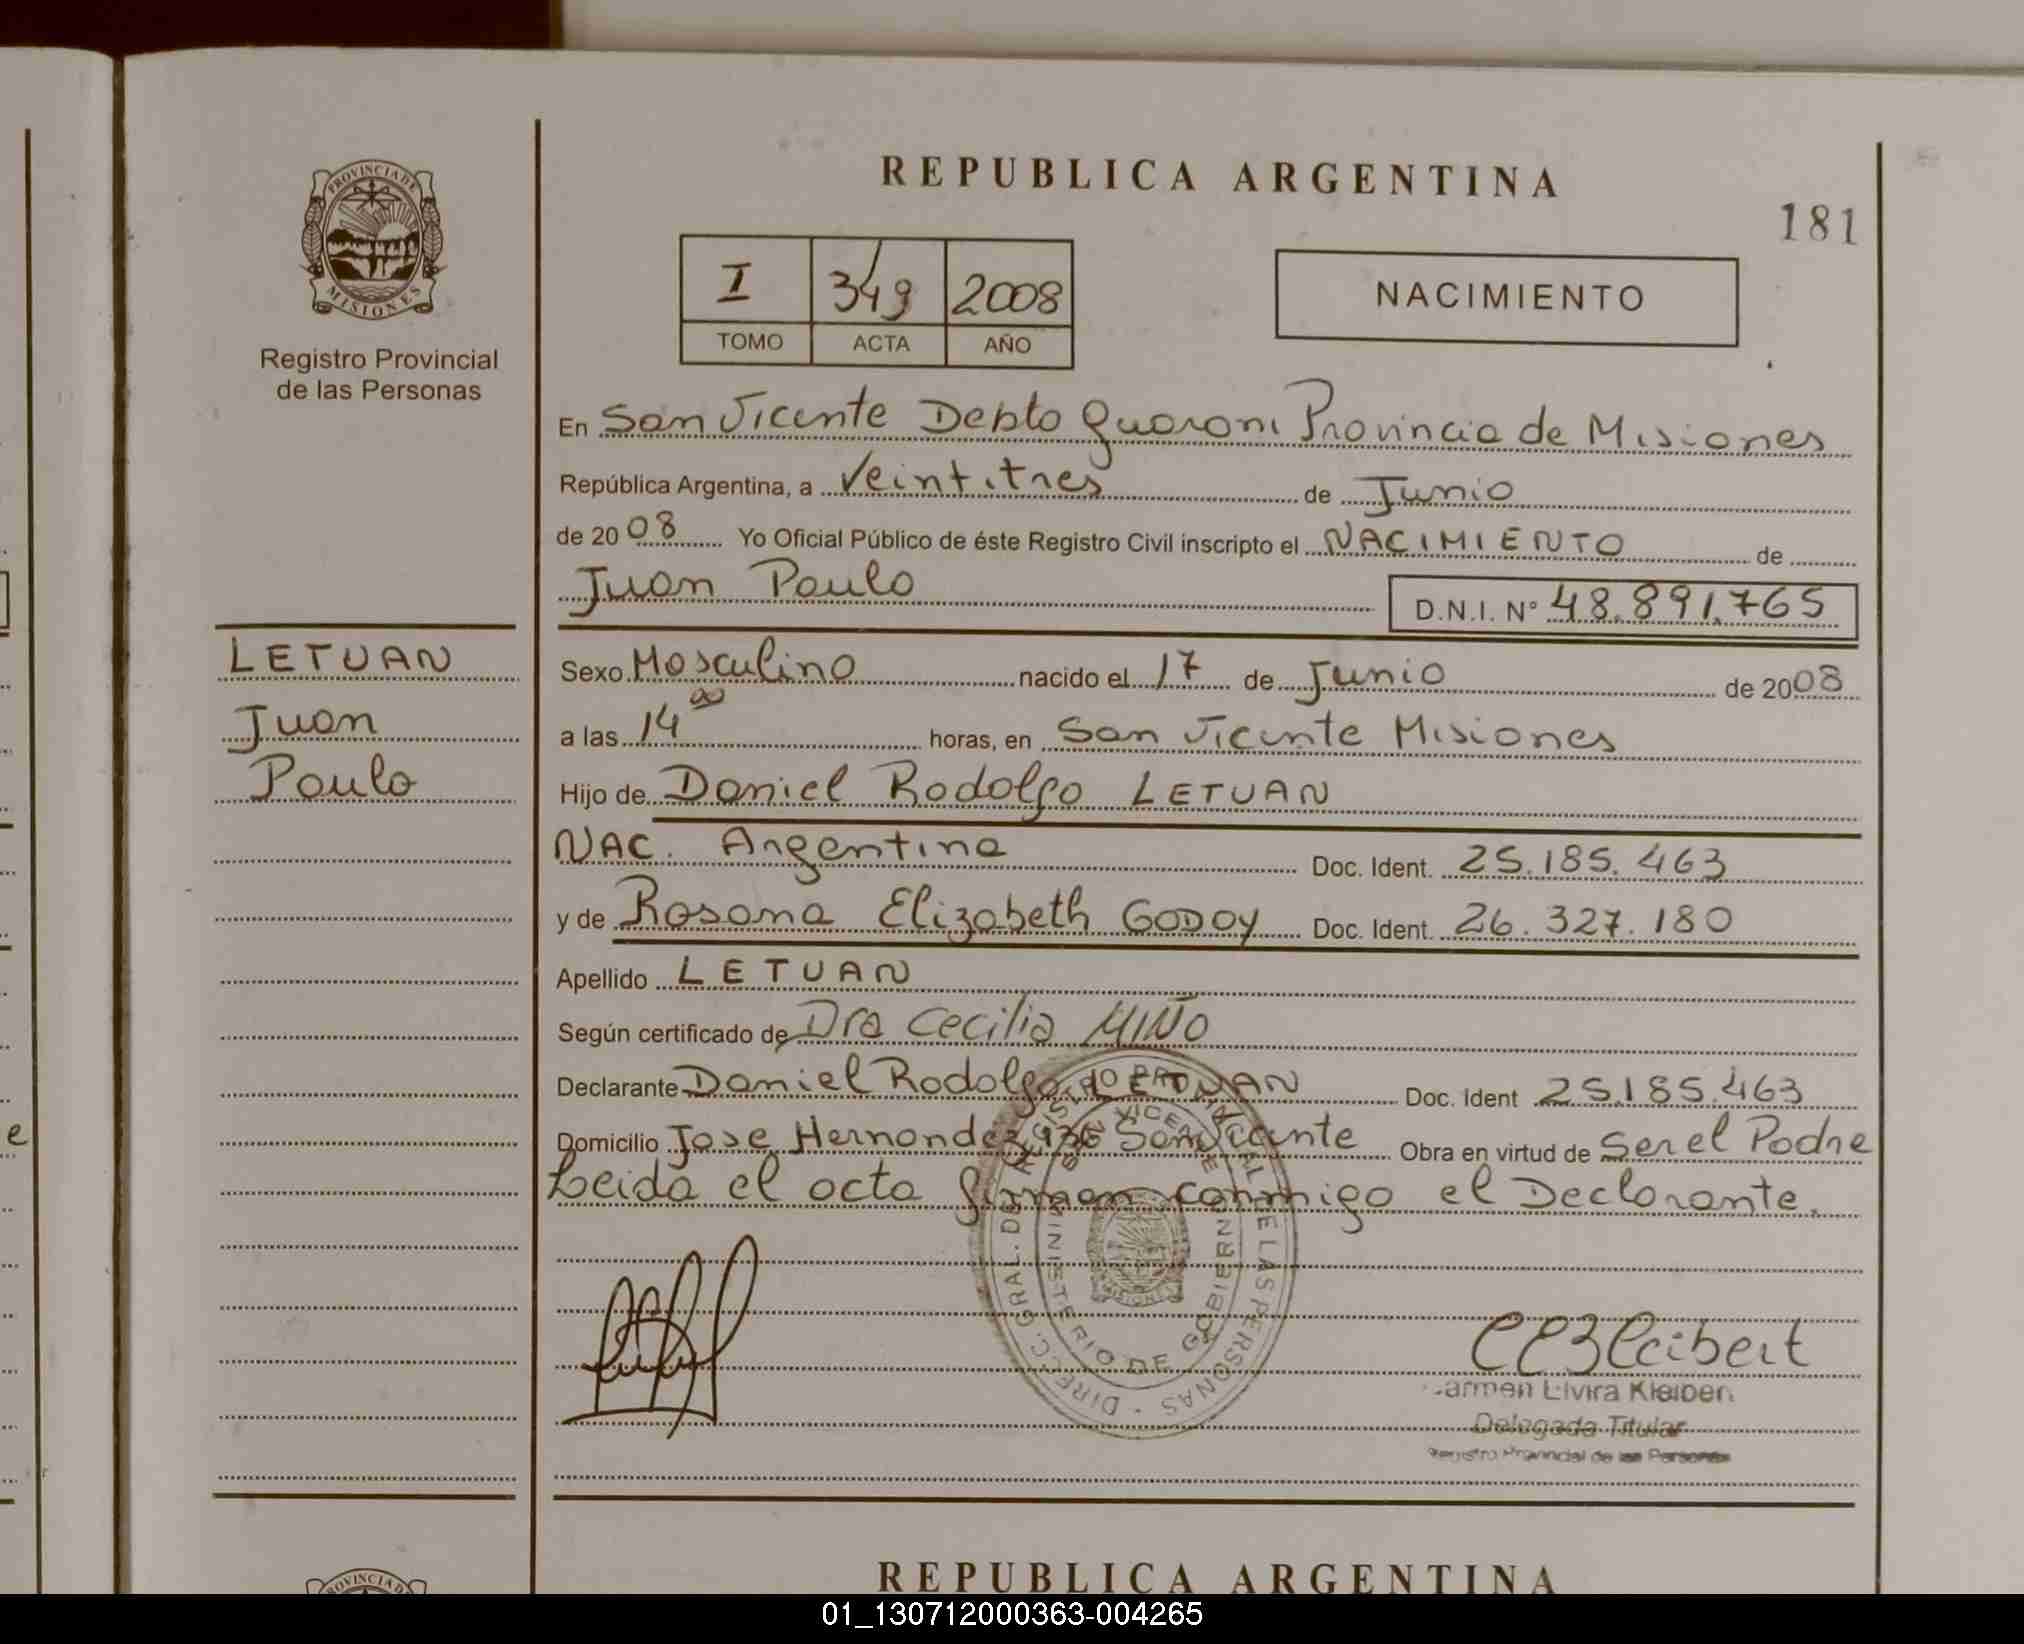 REPUBLICA ARGENTINA
181
PROVINCIA DE
MISIONES
Registro Provincial
de las Personas
I 349 2008
TOMO ACTA AÑO
NACIMIENTO
En San Vicente Depto Guarani Provincia de Misiones
República Argentina, a Veintitres de Junio
de 2008 Yo Oficial Público de éste Registro Civil inscripto el NACIMIENTO de
Juan Paulo D.N.I. N° 48.891.765
LETUAN
Juan
Paulo
Sexo Masculino nacido el 17 de Junio de 2008
a las 14 00 horas, en San Vicente Misiones
Hijo de Daniel Rodolfo LETUAN
NAC. Argentina Doc. Ident. 25.185.463
y de Rosana Elizabeth GODOY Doc. Ident. 26.327.180
Apellido LETUAN
Según certificado de Dra Cecilia MIÑO
Declarante Daniel Rodolfo LETUAN Doc. Ident 25.185.463
Domicilio Jose Hernandez 136 San Vicente Obra en virtud de Ser el Padre
Leida el acta firman conmigo el Declarante.
DIRECC. GRAL. DEL REGISTRO PROVINCIAL DE LAS PERSONAS
SAN VICENTE
MINISTERIO DE GOBIERNO
MISIONES
Carmen Elvira Kleibert
Delegada Titular
Registro Provincial de las Personas
e
PROVINCIA DE
REPUBLICA ARGENTINA
01_130712000363-004265